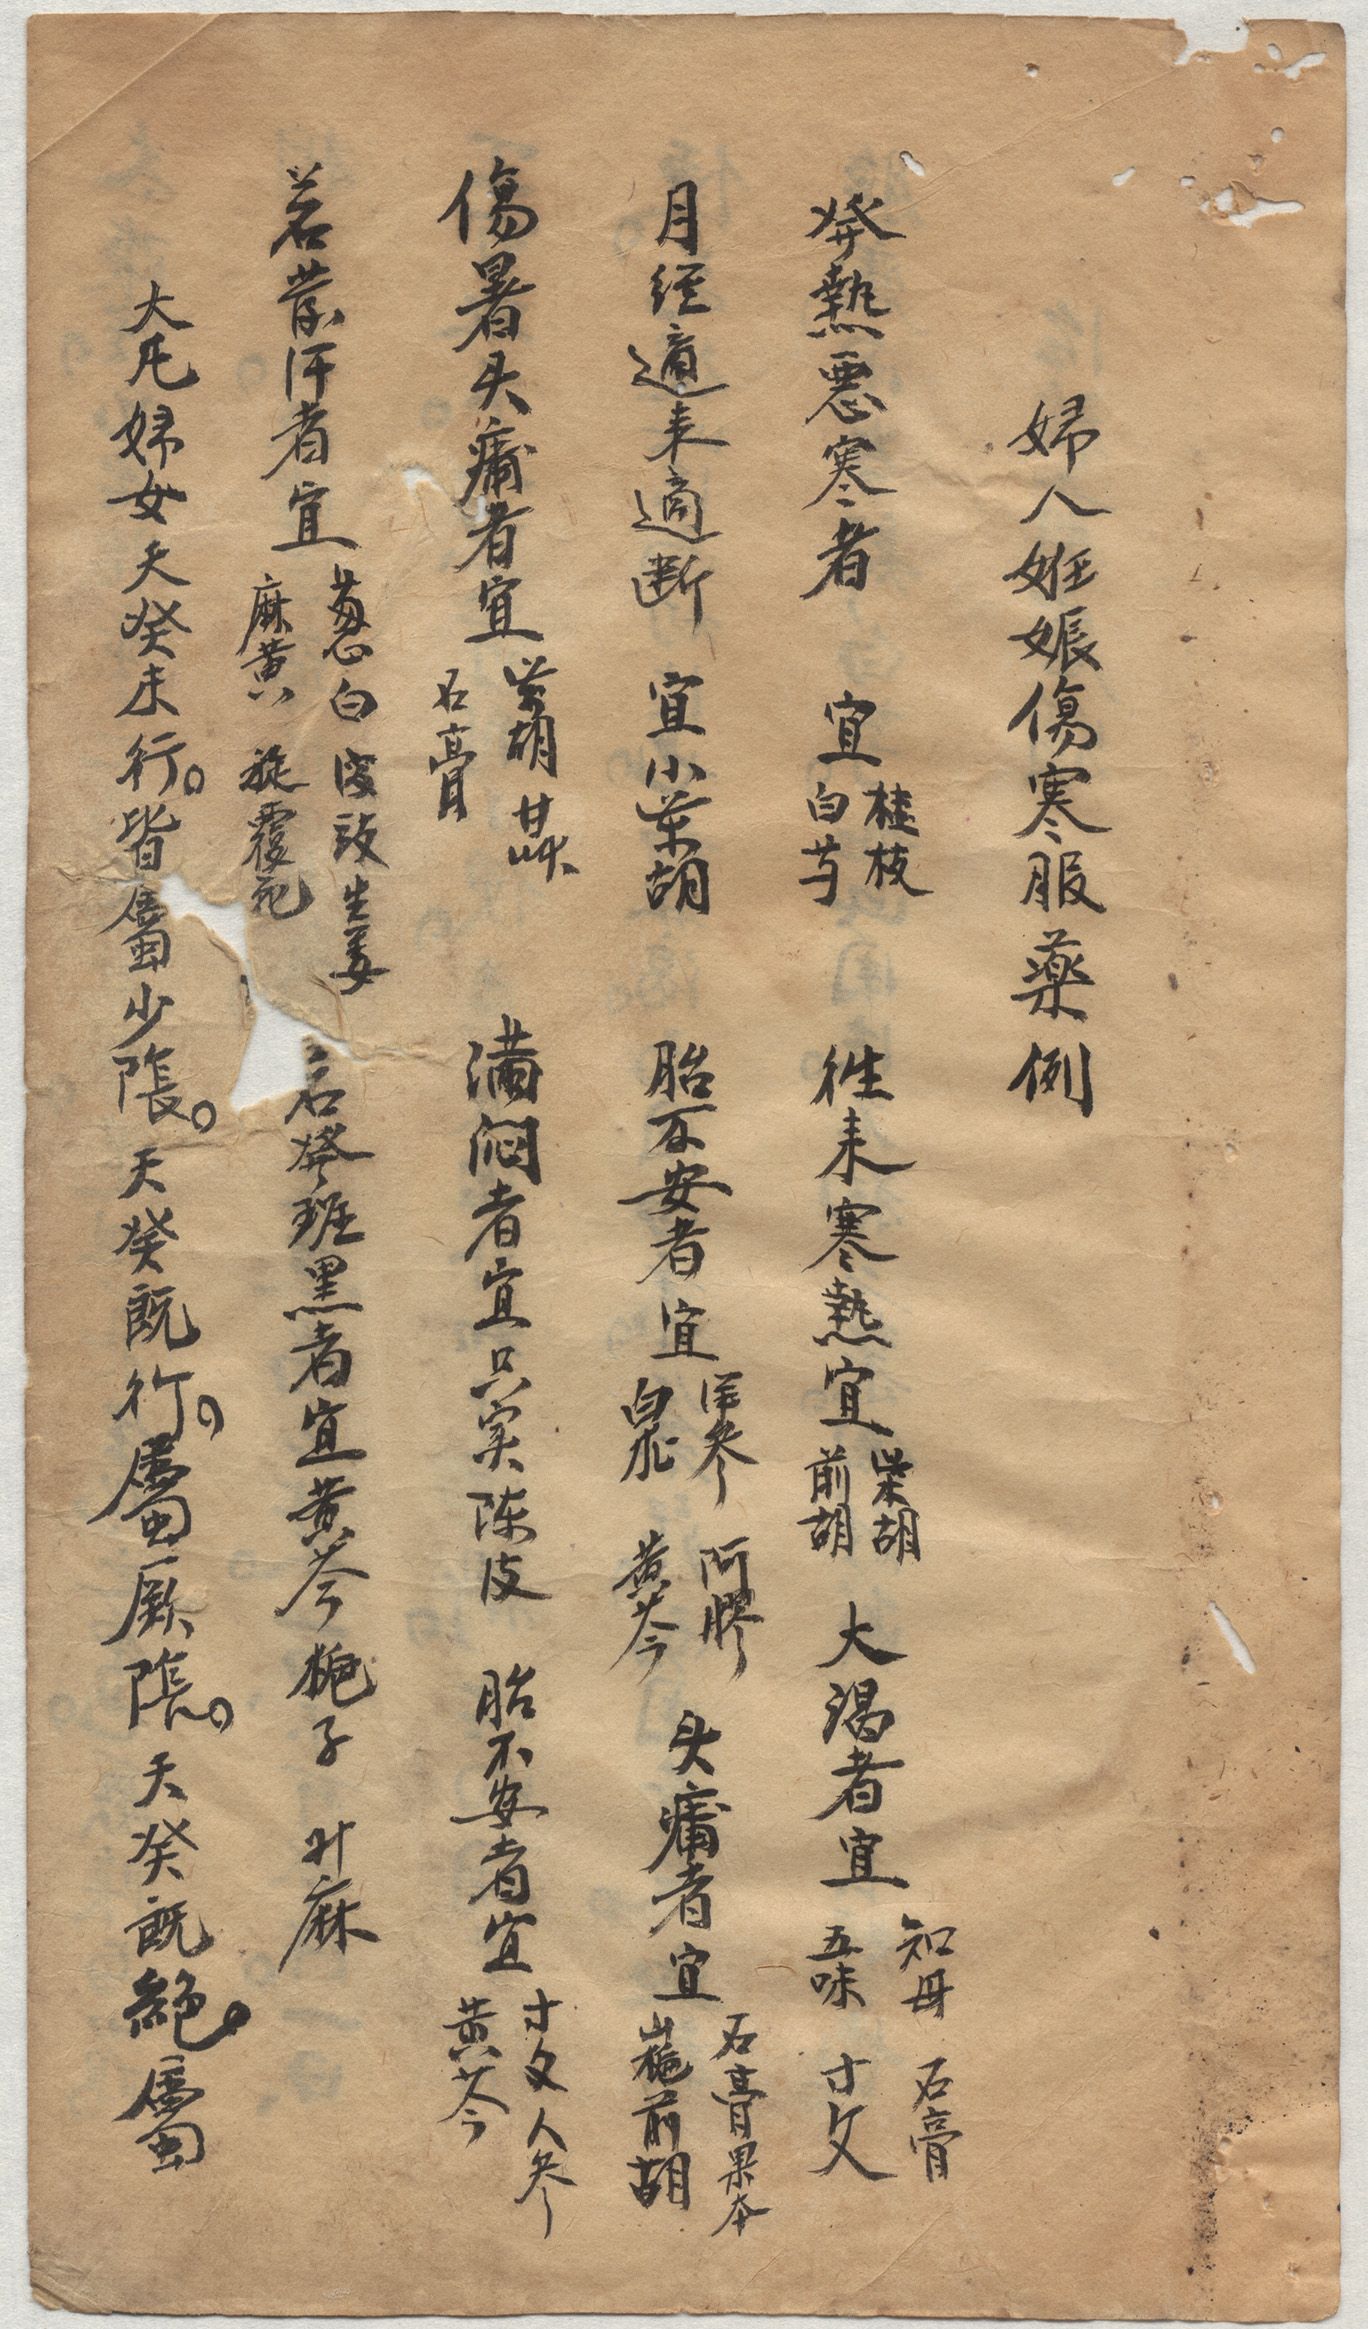 婦人姙娠傷寒服藥例
發熱惡寒者 宜桂枝白芍 徃來寒熱宜柴胡前胡 大渴者宜知母石膏五味寸文
月经適来適断 宜小柴胡 胎不安者宜人参阿膠白朮黄芩 头痛者宜石膏果本山梔前胡
傷暑头痛者宜柴胡甘草石膏 满闷者宜只实陈皮 胎不安者宜寸文人参黄芩
若發汗者宜葱白淡豉生姜麻黄旋覆花 若發班黑者宜黄芩梔子 升麻
大凡婦女天癸未行。皆属少陰。天癸既行。属厥陰。天癸既絕。属